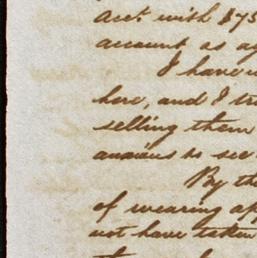 acct with $75
account as ag
I have
here, and I tr
selling them
anxious to see
By the
of wearing app
not have taken